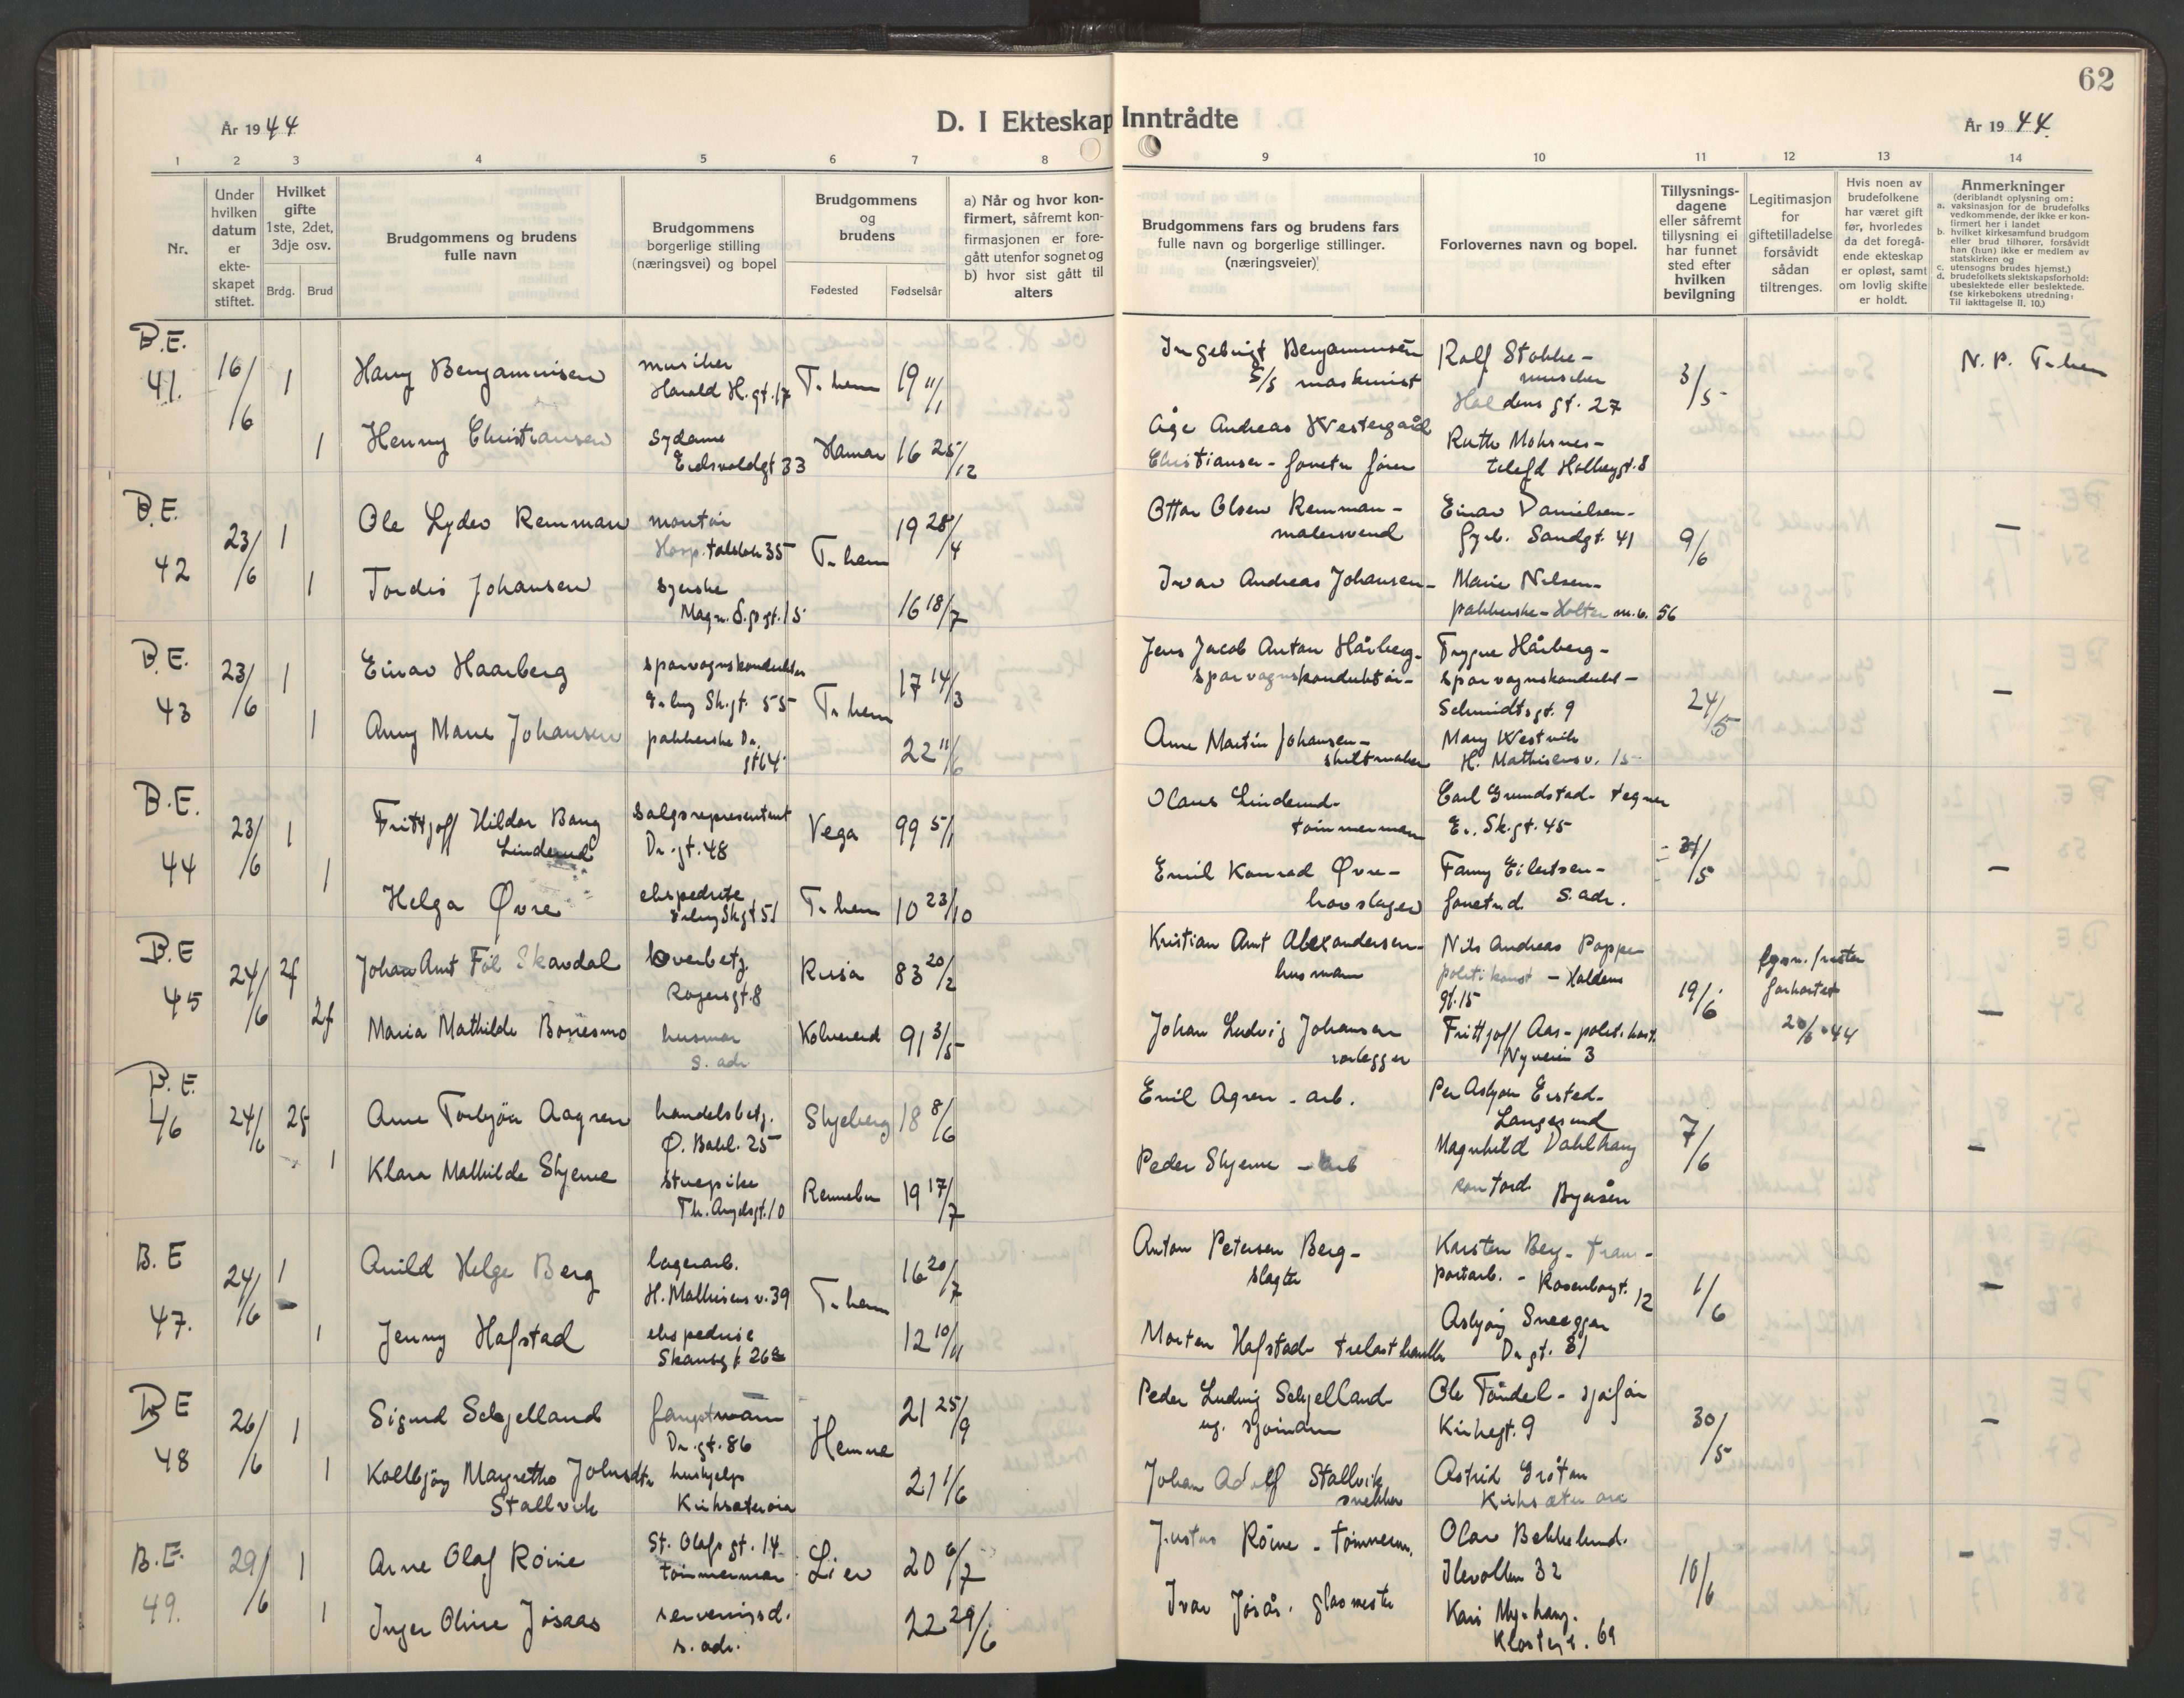 62
År 1944
D. I Ekteskap Inntrådte
År 1944.
1 2 3 4 5 6 7 8 9 10 11 12 13 14
Nr.
Under hvilken datum er ekte-skapet stiftet.
Hvilket gifte 1ste, 2det, 3dje osv.
Brdg. Brud
Brudgommens og brudens fulle navn
Brudgommens borgerlige stilling (næringsvei) og bopel
Brudgommens og brudens
Fødested Fødselsår
a) Når og hvor kon-firmert, såfremt kon-firmasjonen er fore-gått utenfor sognet og b) hvor sist gått til alters
Brudgommens fars og brudens fars fulle navn og borgerlige stillinger. (næringsveier)
Forlovernes navn og bopel.
Tillysnings-dagene eller såfremt tillysning ei har funnet sted efter hvilken bevilgning
Legitimasjon for giftetilladelse forsåvidt sådan tiltrenges.
Hvis noen av brudefolkene har været gift før, hvorledes da det foregå-ende ekteskap er opløst, samt om lovlig skifte er holdt.
Anmerkninger
(deriblandt oplysning om:
a. vaksinasjon for de brudefolks vedkommende, der ikke er kon-firmert her i landet
b. hvilket kirkesamfund brudgom eller brud tilhører, forsåvidt han (hun) ikke er medlem av statskirken og
c. utensogns brudes hjemst.)
d. brudefolkets slektskapsforhold: ubeslektede eller beslektede.
(se kirkebokens utredning: Til iakttagelse II, 10.)
B.E.
41. 16/6 1 Harry Benjaminsen
musiker
Harald H. gt. 17
T.hem 19 11/1
Ingebrigt Benjaminsen
S/S maskinist
Rolf Stokke -
musiker
Haldens gt. 27
3/5
N. P. T.hem
1 Henny Christiansen
Sydame
Eidsvoldgt 33
Hamar 16 25/12
Åge Andreas Westergård
Christiansen -
Ruth Moksnes -
telefd Holbergt. 8
B.E.
42 23/6 1 Ole Lyder Remman
montør
Hosp.talsløk 35
T.hem 19 28/4
Ottar Olsen Remman -
malersvend
Einar Danielsen -
fyrb. Sandgt. 41
9/6
—
1 Tordis Johansen
syerske
Magn. d. g. gt. 15
16 18/7
Ivar Andreas Johansen -
Marie Nilsen -
pakkerske - Holterm. v. 56
B.E.
43 23/6 1 Einar Haarberg
sporvognskonduktør
Erling Sk. gt. 55
T.hem 17 14/3
Jens Jacob Anton Hårberg -
sporvognskonduktør -
Trygve Hårberg -
sporvognskondukt -
Schmidtsgt. 9
24/5
—
1 Anny Marie Johansen
pakkerske Dr.
gt 64
22 11/6
Arne Martin Johansen -
skiltmaker
Mary Westvik
H. Mathisens v. 15
B.E.
44 23/6 1 Frittjoff Hildor Bang
Linderud
salgsrepresentant
Dr. gt. 48
Vega 99 5/1
Olaus Linderud -
tømmerman
Carl Grundstad - tegner
E. Sk. gt. 45
31/5
—
1 Helga Øvre
ekspeditrise
Erling Skgt 51
T.hem 10 23/10
Emil Konrad Øvre -
hovslager
Fanny Eilertsen -
s. adr.
B.E
45 24/6 2f Johan Arnt Føli Skavdal
overbetj.
Rogersgt. 8
Rissa 83 20/2
Kristian Arnt Alexandersen -
husmann
Nils Andreas Poppe
politikonst - Haldens
gt. 15
19/6
forkortet
20/6 - 44
—
2f Maria Mathilde Bonesmo
husmor
s. adr
Kolvereid 91 3/5
Johan Ludvig Johansen
rørlegger
Frittjoff Aas - politikonst.
Nyveien 3
B.E.
46 24/6 2f Arne Torbjørn Aagren
handelsbetj.
Ø. Bakl. 25
Skjeberg 18 8/6
Emil Agren - arb.
Per Asbjørn Ersted -
Langesund
7/6
—
1 Klara Mathilde Skjerve
stuepike
Th. Angelsgt. 10
Rennebu 19 17/7
Peder Skjerve - arb
Magnhild Dahlhaug
kontord Byåsen
B. E
47. 24/6 1 Arild Helge Berg
lagerarb.
H. Mathisens v. 39
T.hem 16 20/7
Anton Petersen Berg -
slagter
Karsten Berg - trans-
portarb. - Rosenborgt. 12
1/6
—
1 Jenny Hafstad
ekspedrise
Skansegt. 26a
12 10/11
Morten Hafstad - trelasthandler
Asbjørg Sneeggen
Dr gt. 31
B E
48 26/6 1 Sigurd Schjelland
Dr. gt. 86
Hemne 21 25/9
Peder Ludvig Schjelland
ug. sjømann
Ole Tøndel - sjåfør
Kirkegt. 9
30/5
—
1 Kollbjørg Margrethe Johnsdtr
Stallvik
hushjelp
Kirksæterøra
21 1/6
Johan Adolf Stallvik
snekker
Astrid Grøtan
Kirksæterøra
B.E.
49. 29/6 1 Arne Olaf Röine
St. Olafs gt. 14
tømmerman
Lier 20 6/7
Justus Röine - tømmerm.
Olav Bekkelund.
Ilevollen 32
10/6
—
1 Inger Oline Jøsaas
serveringsd.
s. adr.
22 29/6
Ivar Jøsås. glasmester
Kari Myrhaug.
Klostergt. 69